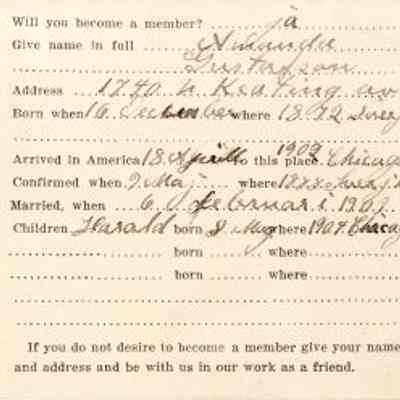 Will you become a member? ja
Give name in full Amanda
Gustafson
Address 1740 N Keating av
Born when 16 December where 1872 Sverj
Arrived in America 18 April to this place 1902 Chicago
Confirmed when 9 Maj where 1888 Sverj
Married, when 6 Februari 1902
Children Harald born 8 May where 1904 Chicag
born where
born where
If you do not desire to become a member give your name
and address and be with us in our work as a friend.